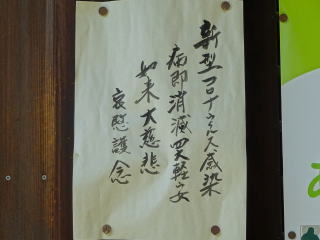 新型コロナウルス感染
病即消滅四大軽安
如来大慈悲
哀愍護念